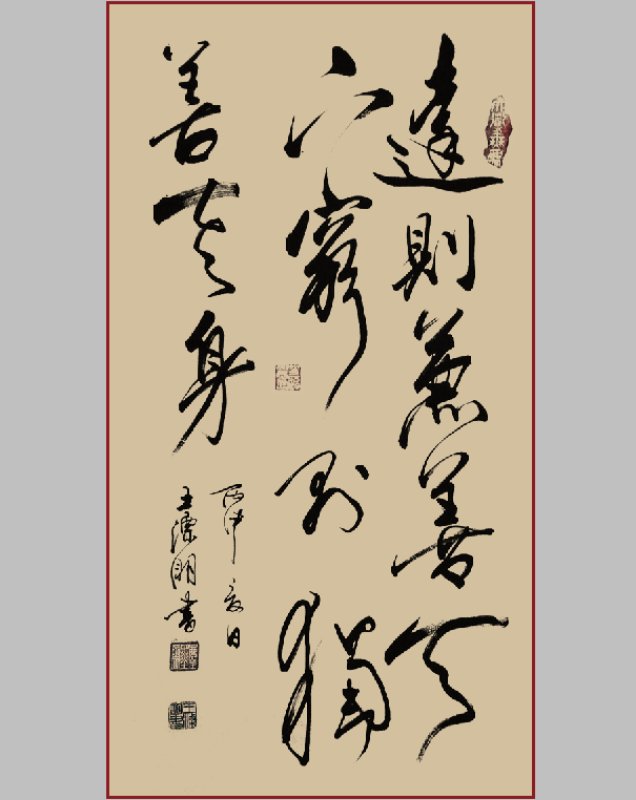 達則兼善天
下窮則獨
善其身
丙申夏日
王深明書